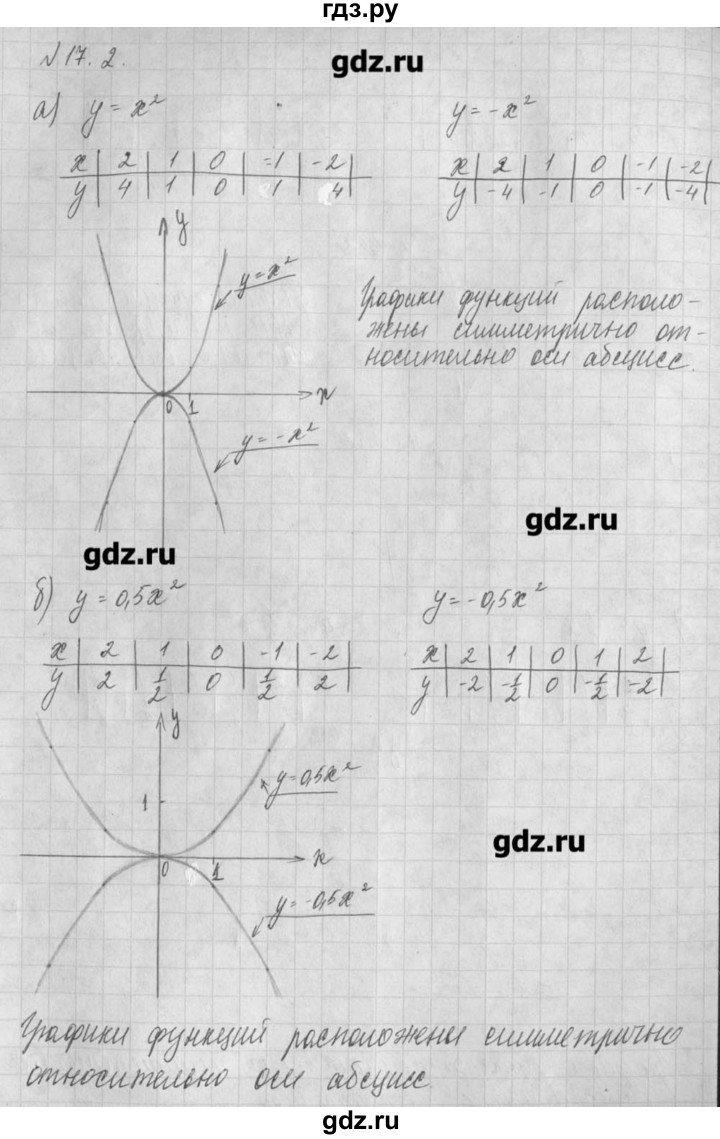 гдз.ру
№ 17.2.
gdz.ru
а) y = x² y = -x²
x | 2 | 1 | 0 | -1 | -2 |
y | 4 | 1 | 0 | 1 | 4 |
x | 2 | 1 | 0 | -1 | -2 |
y | -4 | -1 | 0 | -1 | -4 |
y
y = x²
Графики функций располо-
жены симметрично от-
носительно оси абсцисс.
0 1 x
y = -x²
gdz.ru
gdz.ru
б) y = 0,5x² y = -0,5x²
x | 2 | 1 | 0 | -1 | -2 |
y | 2 | 1/2 | 0 | 1/2 | 2 |
x | 2 | 1 | 0 | 1 | 2 |
y | -2 | -1/2 | 0 | -1/2 | -2 |
y
y = 0,5x²
1
gdz.ru
0 1 x
y = -0,5x²
Графики функций расположены симметрично
относительно оси абсцисс.
gdz.ru